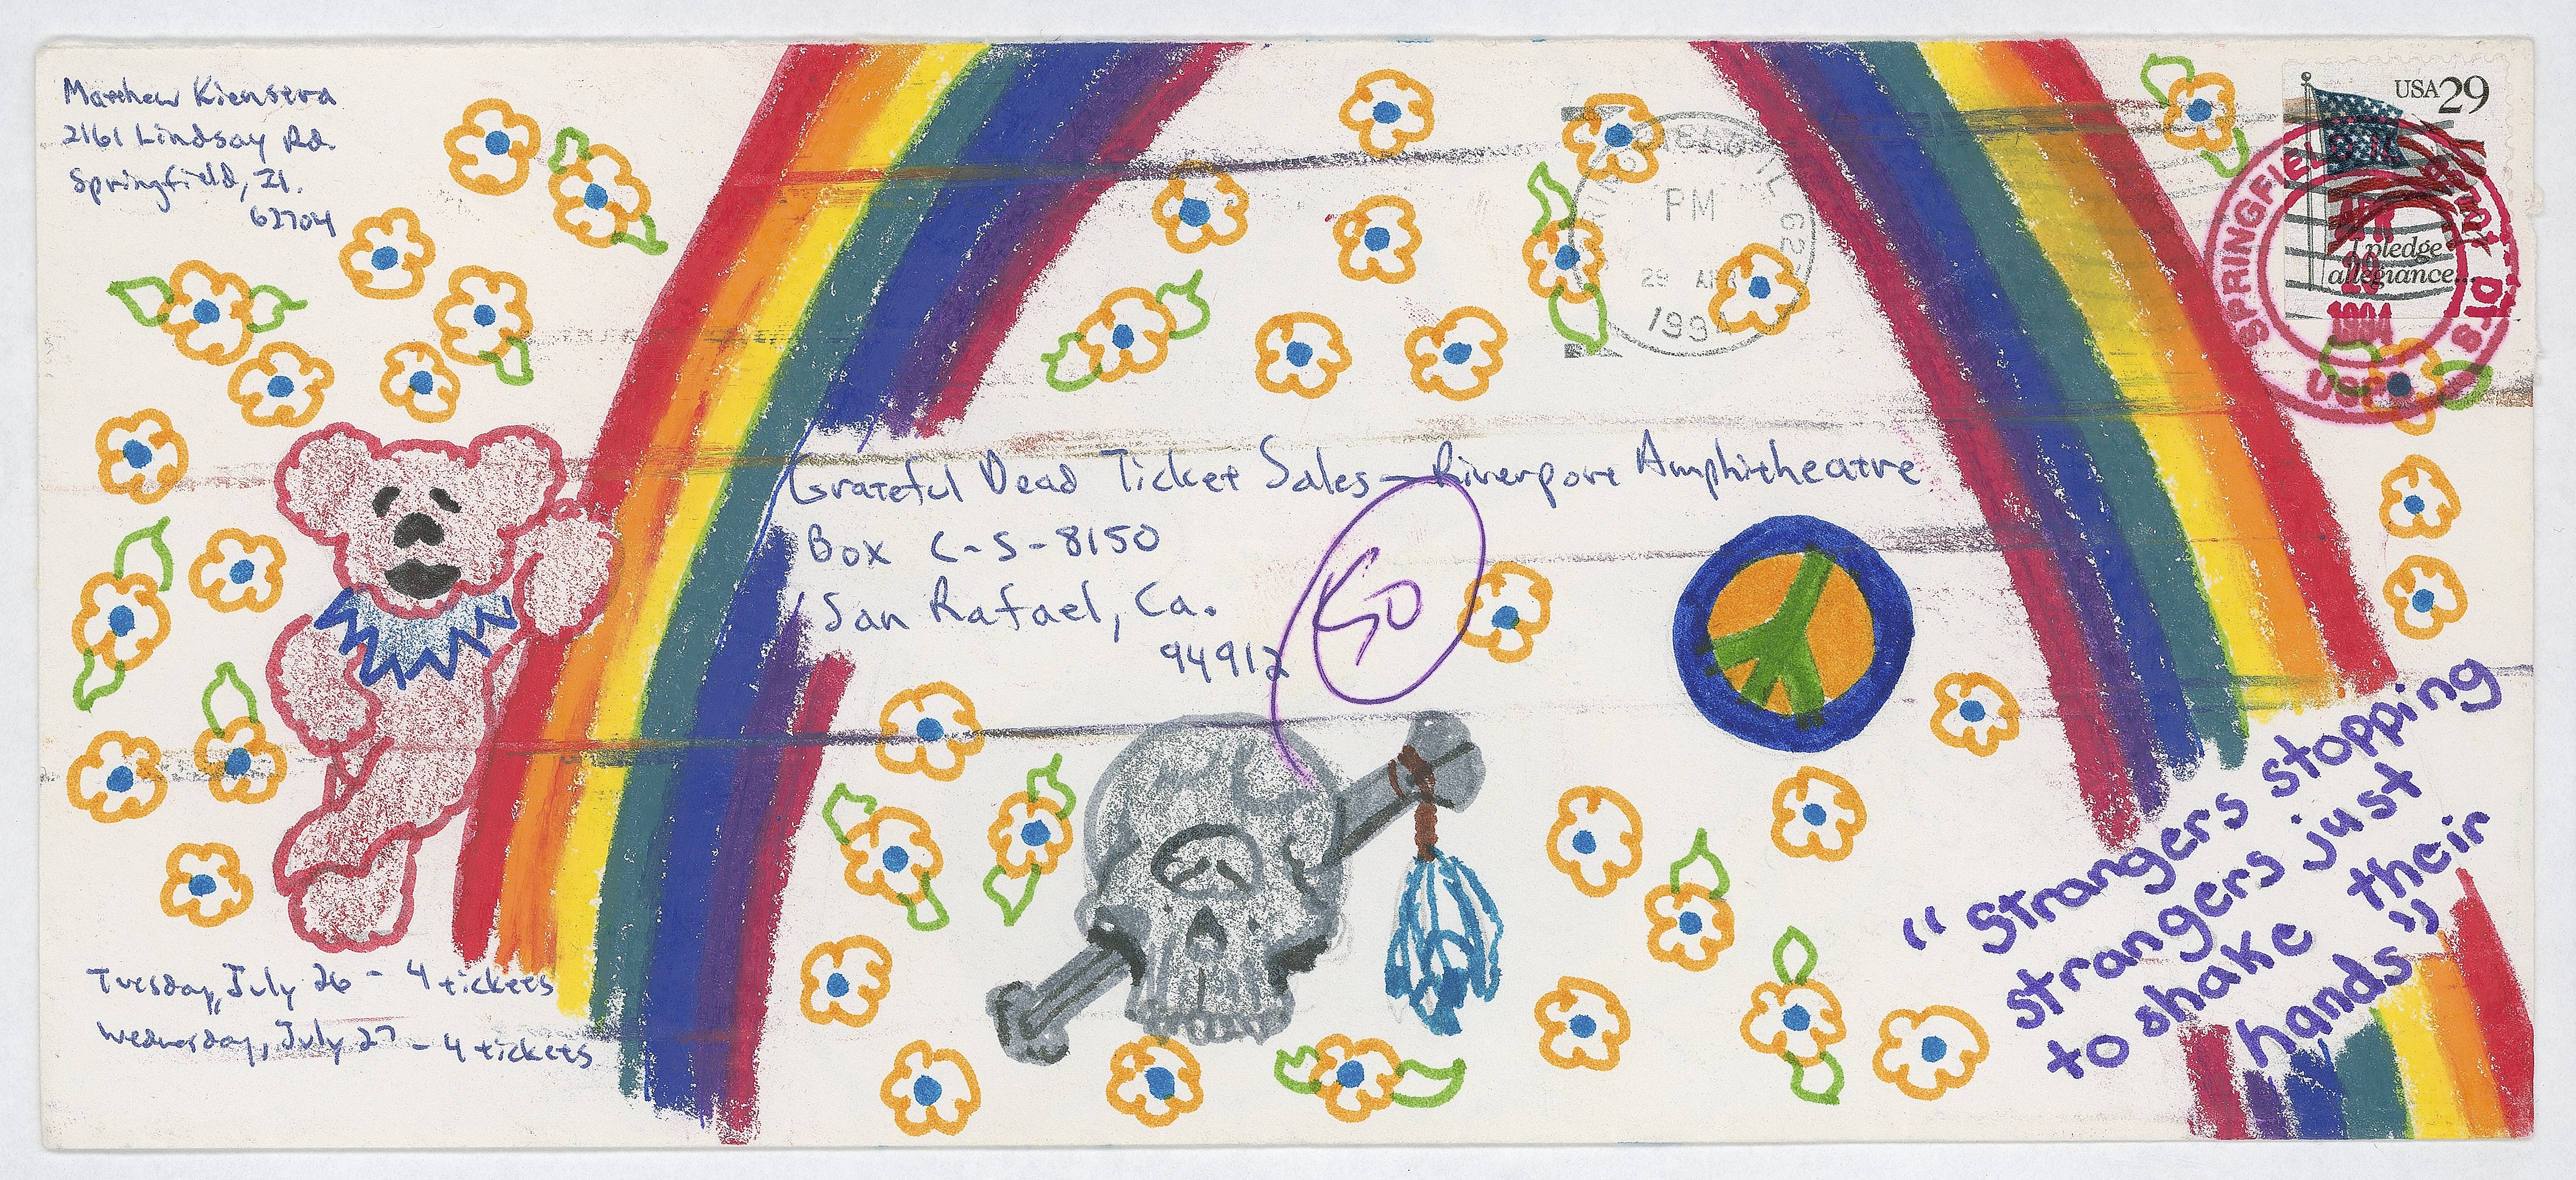 Matthew Kienstra
2161 Lindsay Rd.
Springfield, Il.
62704
USA 29
I pledge
allegiance...
SPRINGFIELD
APR
1994
USPS
PM
29 APR
1994
Grateful Dead Ticket Sales - Riverport Amphitheatre
Box C-S-8150
San Rafael, Ca.
94912
SO
"Strangers stopping
strangers just
to shake their
hands"
Tuesday, July 26 - 4 tickets
Wednesday, July 27 - 4 tickets